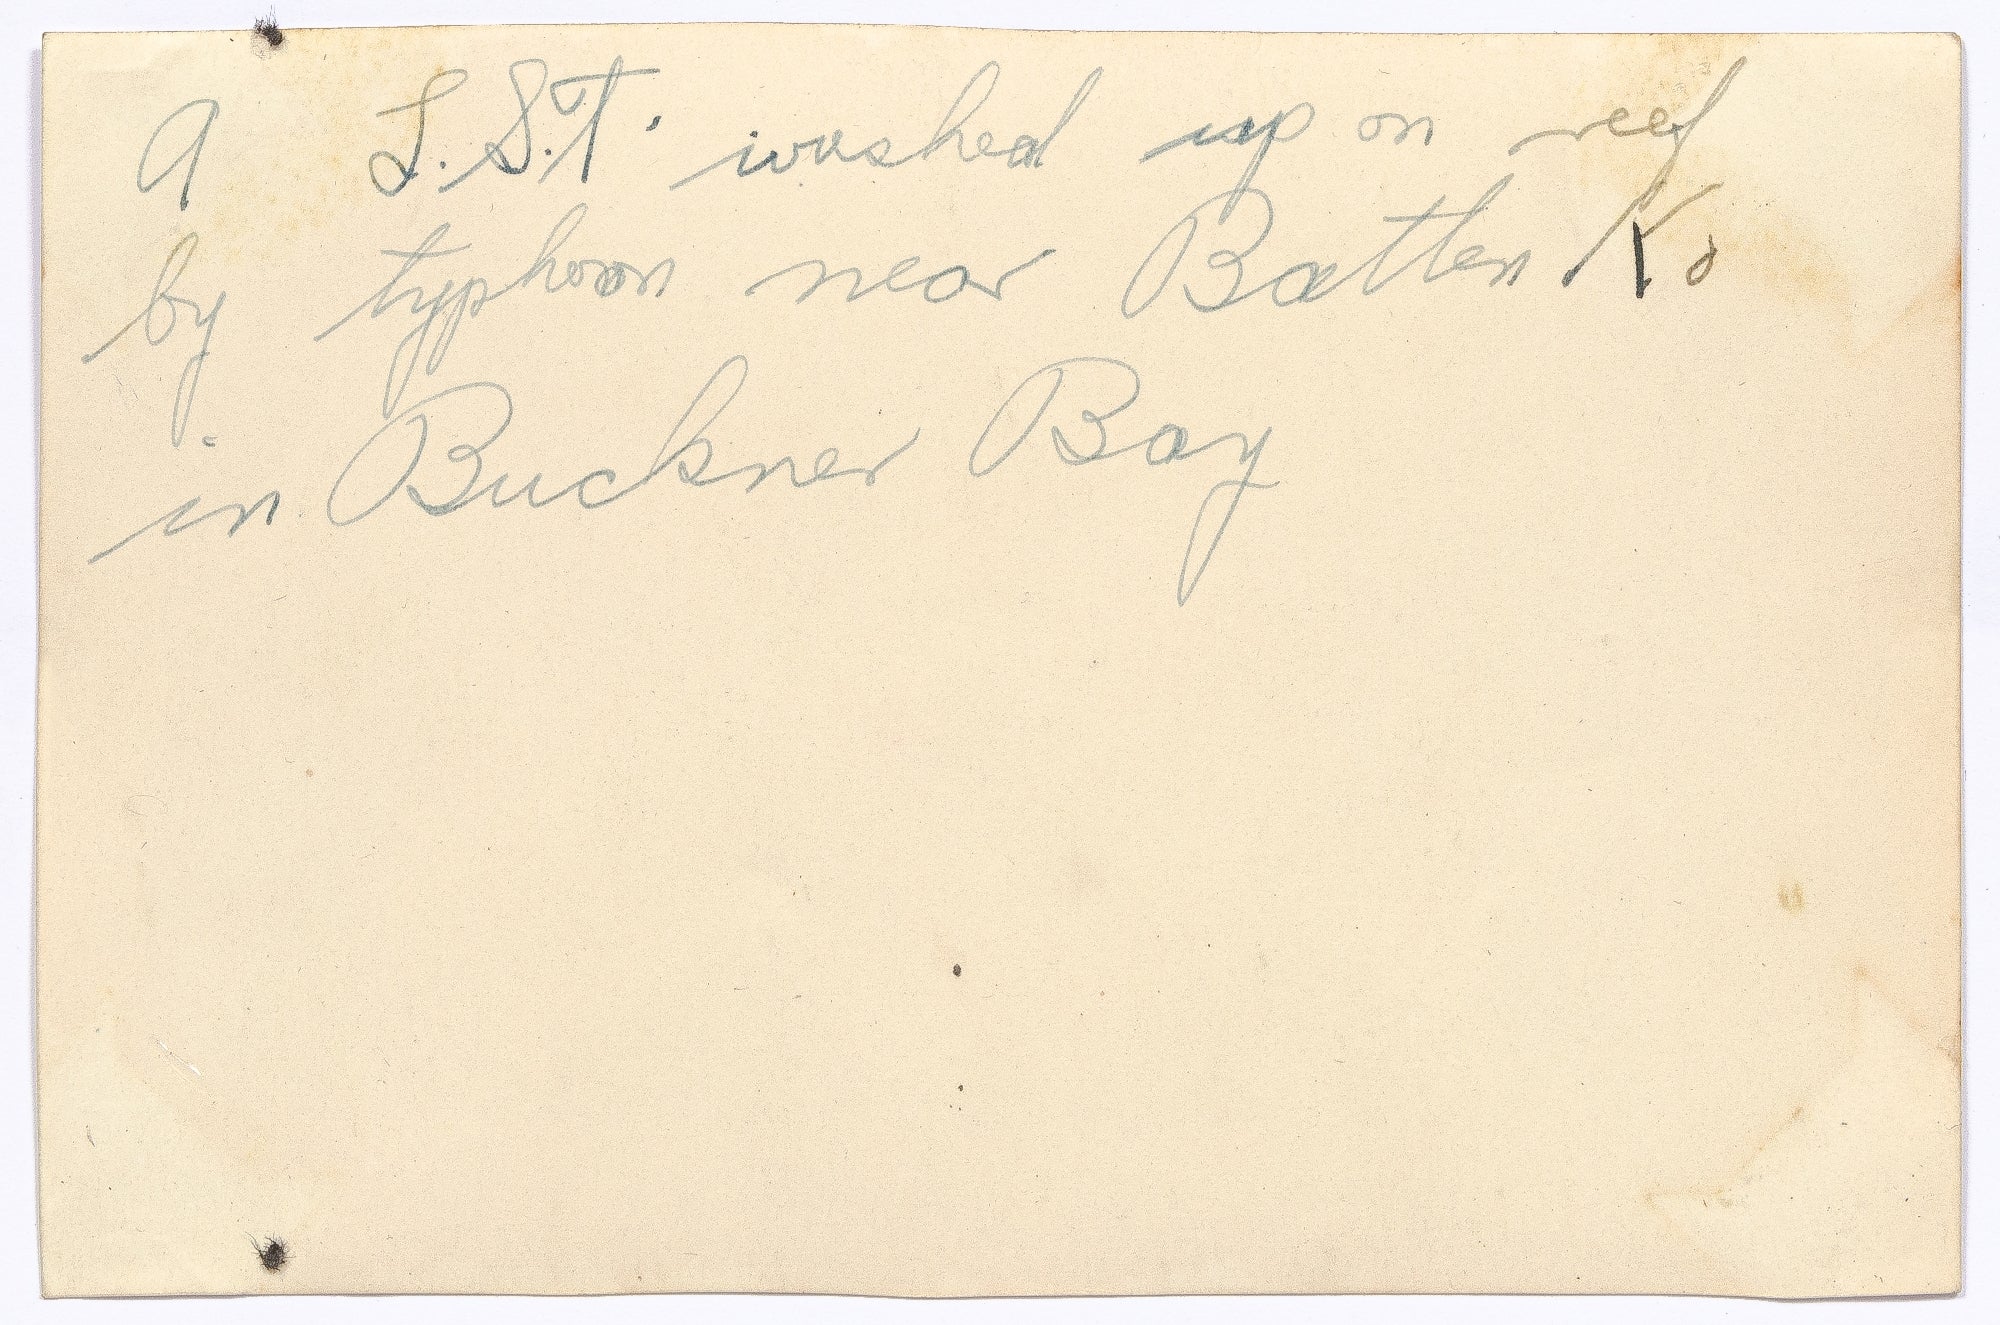 A L.S.T. washed up on reef
by typhoon near Batten Ko
in Buckner Bay